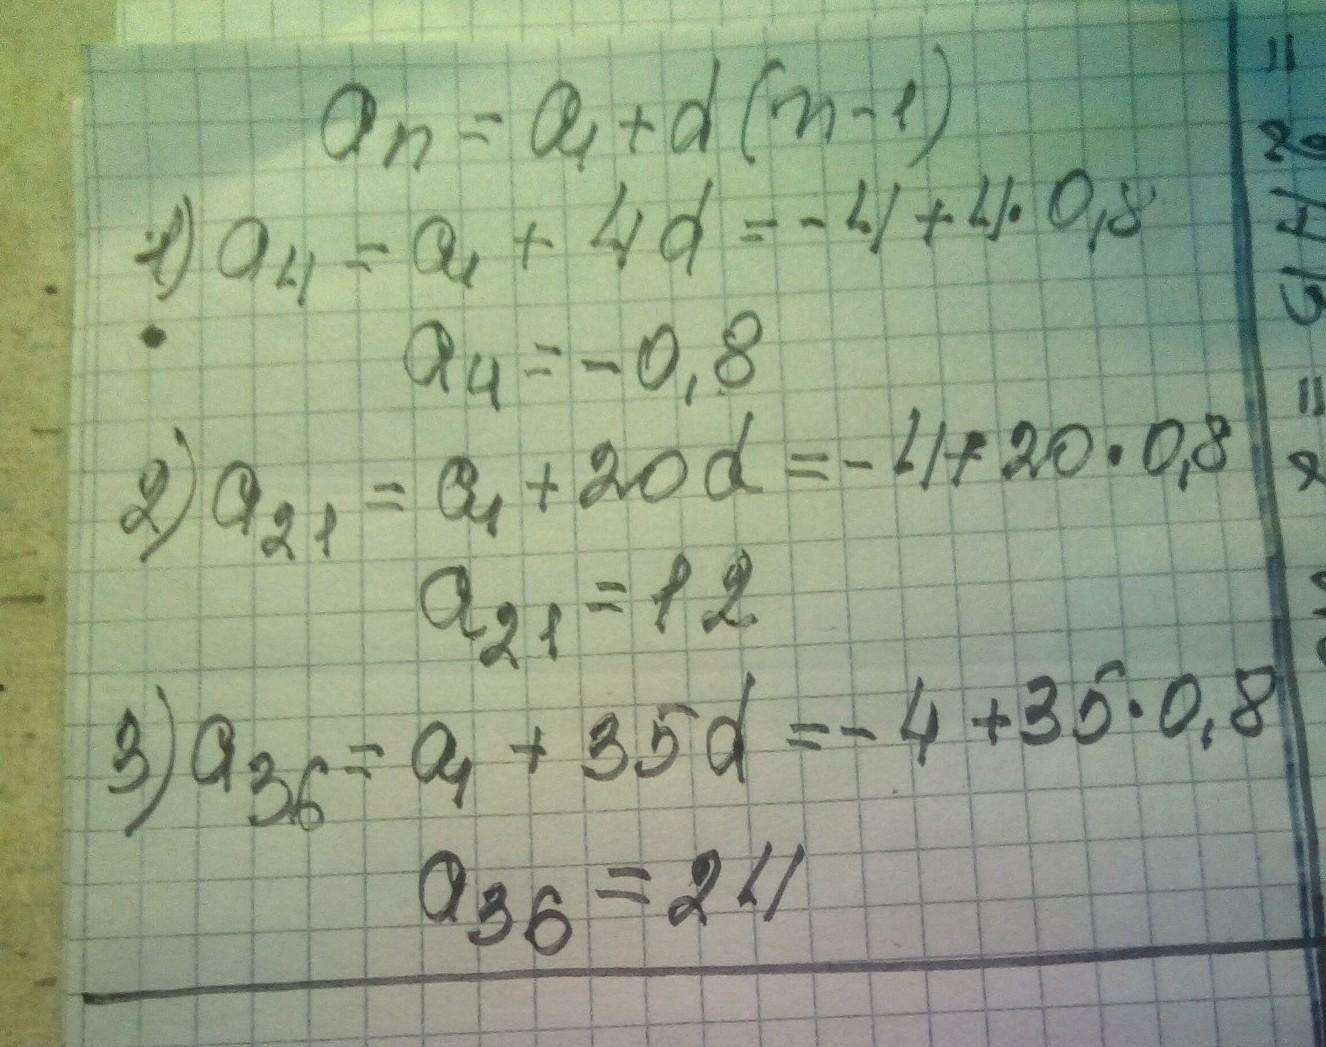 an = a1 + d(n-1)
1) a4 = a1 + 4d = -4 + 4 · 0,8
a4 = -0,8
2) a21 = a1 + 20d = -4 + 20 · 0,8
a21 = 12
3) a36 = a1 + 35d = -4 + 35 · 0,8
a36 = 24